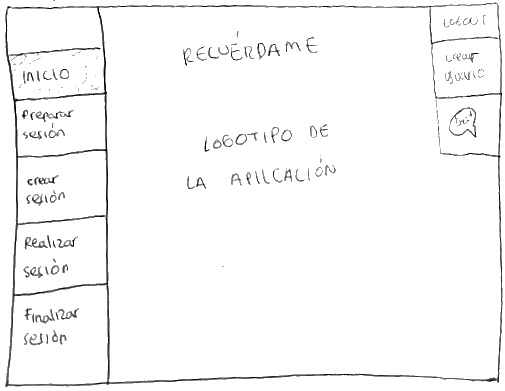 INICIO
Preparar
sesión
crear
sesión
Realizar
sesión
Finalizar
sesión
RECUÉRDAME
LOGOTIPO DE
LA APILCACIÓN
LOGOUT
crear
usuario